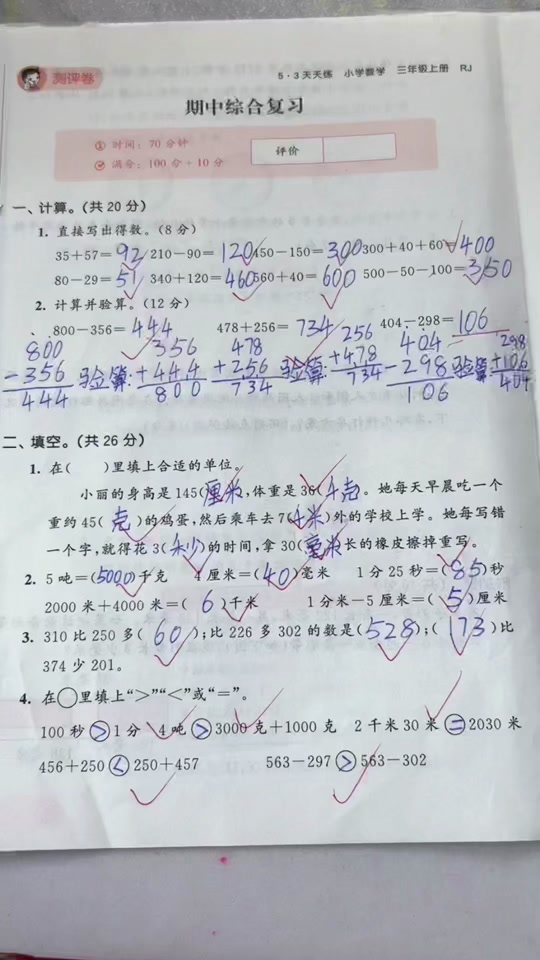 测评卷
5·3天天练 小学数学 三年级上册 RJ
期中综合复习
时间:70分钟
满分:100分+10分
评价
一、计算。(共20分)
1. 直接写出得数。(8分)
35+57=92 210-90=120 450-150=300 300+40+60=400
80-29=51 340+120=460 560+40=600 500-50-100=350
2. 计算并验算。(12分)
800-356=444 478+256=734 404-298=106
800 356 478 256 404 298
-356 验算:+444 +256 验算:+478 -298 验算+106
444 800 734 734 106 404
二、填空。(共26分)
1. 在( )里填上合适的单位。
小丽的身高是145(厘米),体重是36(千克。她每天早晨吃一个
重约45(克)的鸡蛋,然后乘车去7(千米)外的学校上学。她每写错
一个字,就得花3(秒)的时间,拿30(毫米长的橡皮擦掉重写。
2. 5吨=(5000)千克 4厘米=(40)毫米 1分25秒=(85)秒
2000米+4000米=(6)千米 1分米-5厘米=(5)厘米
3. 310比250多(60);比226多302的数是(528);(173)比
374少201。
4. 在○里填上“>”“<”或“=”。
100秒>1分 4吨>3000克+1000克 2千米30米=2030米
456+250<250+457 563-297>563-302